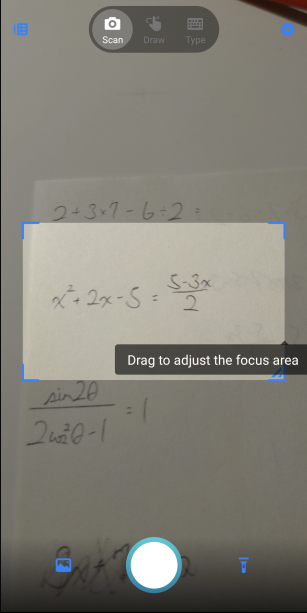 Scan Draw Type
2 + 3×7 - 6 ÷ 2 =
x² + 2x - 5 = (5-3x)/2
Drag to adjust the focus area
sin2θ/(2cos²θ - 1) = 1